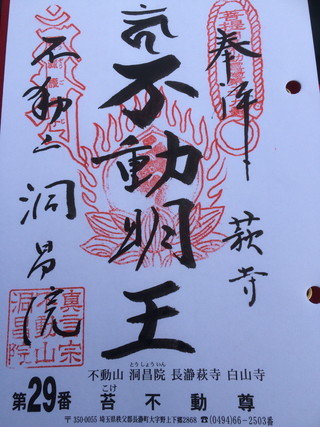 奉拝
萩寺
不動明王
不動山
洞昌院
真言宗
不動山
洞昌院
とうしょういん
不動山 洞昌院 長瀞萩寺 白山寺
こけ
第29番 苔不動尊
〒350-0055 埼玉県秩父郡長瀞町大字野上下郷2868 ☎(0494)66-2503番